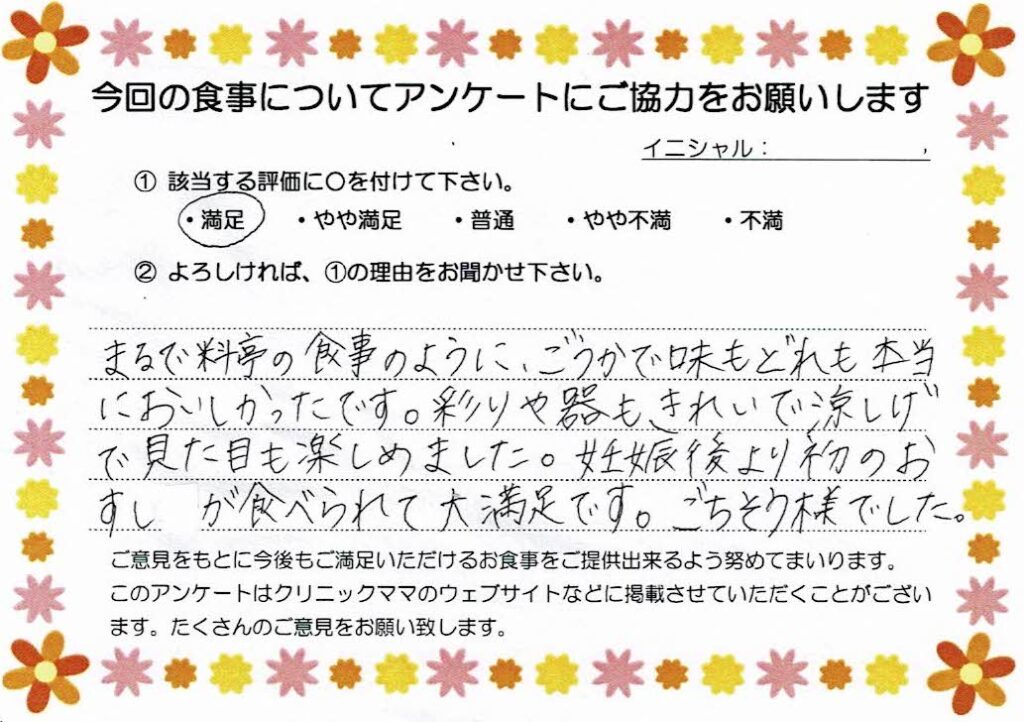 今回の食事についてアンケートにご協力をお願いします
イニシャル：
① 該当する評価に〇を付けて下さい。
・満足 ・やや満足 ・普通 ・やや不満 ・不満
② よろしければ、①の理由をお聞かせ下さい。
まるで料亭の食事のように、ごうかで味もどれも本当
においしかったです。彩りや器もきれいで涼しげ
で見た目も楽しめました。妊娠後より初のお
すし が食べられて大満足です。ごちそう様でした。
ご意見をもとに今後もご満足いただけるお食事をご提供出来るよう努めてまいります。
このアンケートはクリニックママのウェブサイトなどに掲載させていただくことがござい
ます。たくさんのご意見をお願い致します。